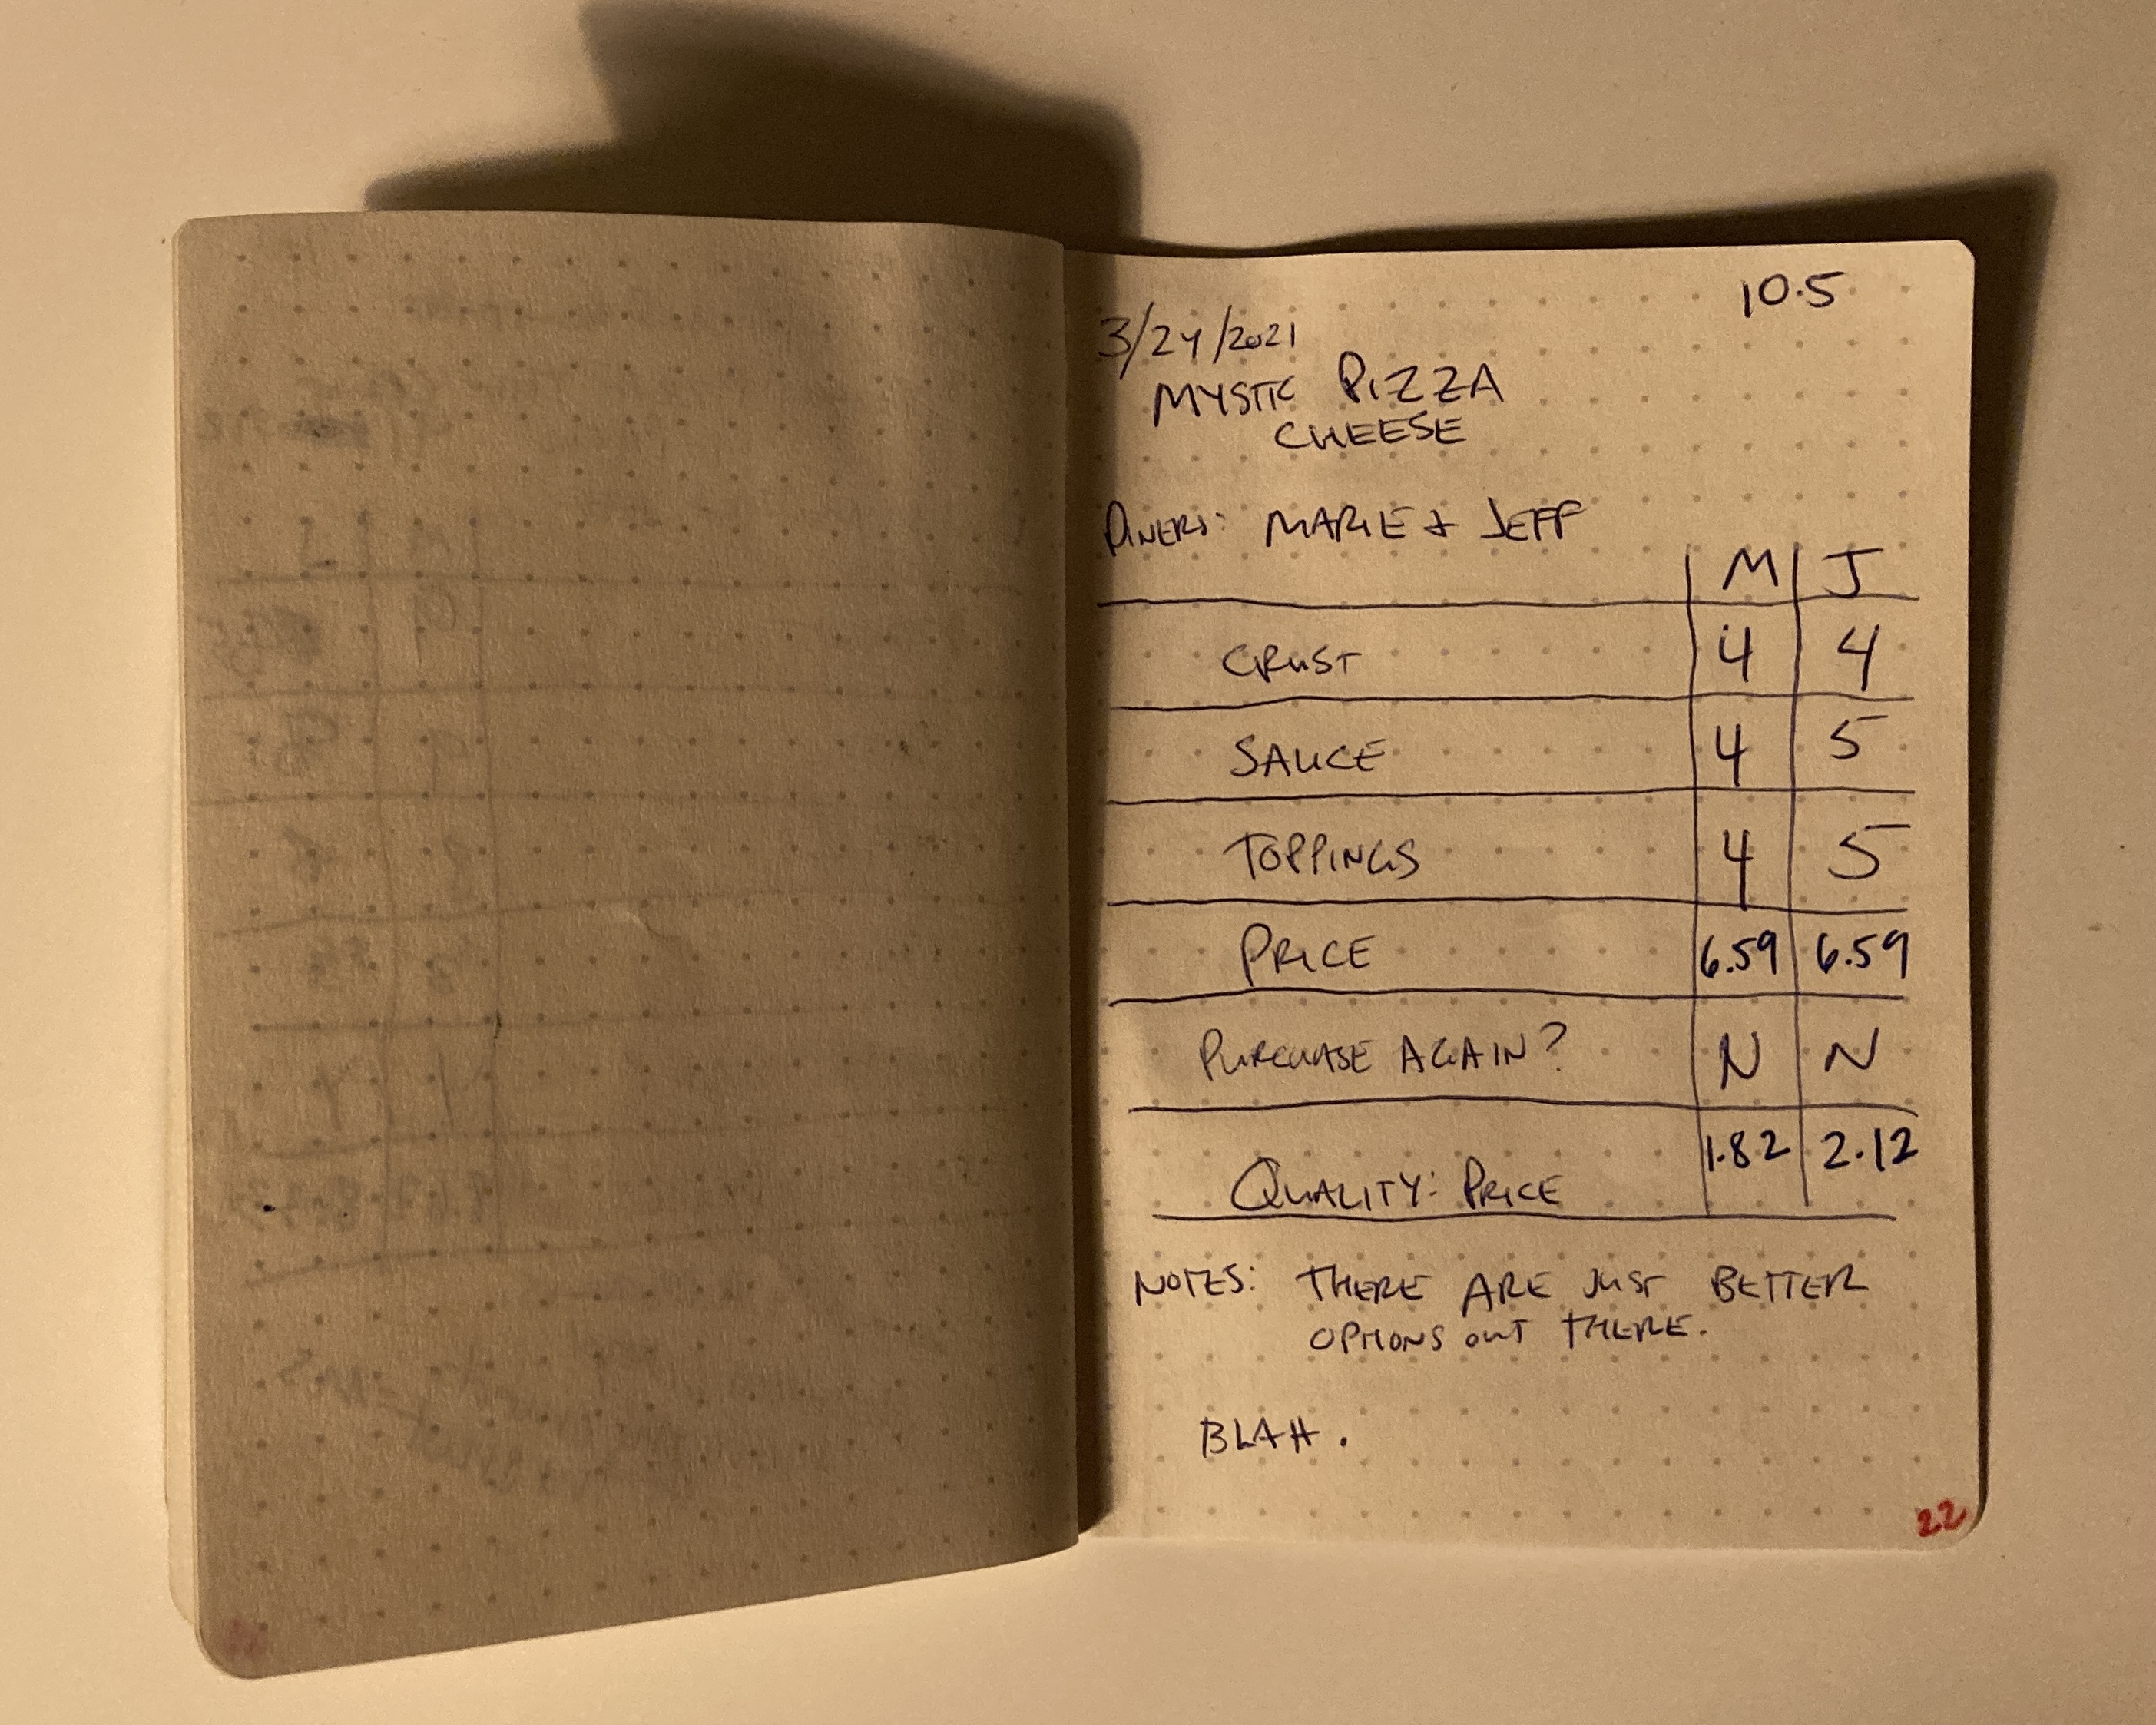 10.5
3/24/2021
MYSTIC PIZZA
CHEESE
DINERS: MARIE & JEFF
M J
CRUST 4 4
SAUCE 4 5
TOPPINGS 4 5
PRICE 6.59 6.59
PURCHASE AGAIN? N N
QUALITY: PRICE 1.82 2.12
NOTES: THERE ARE JUST BETTER
OPTIONS OUT THERE.
BLAH.
22